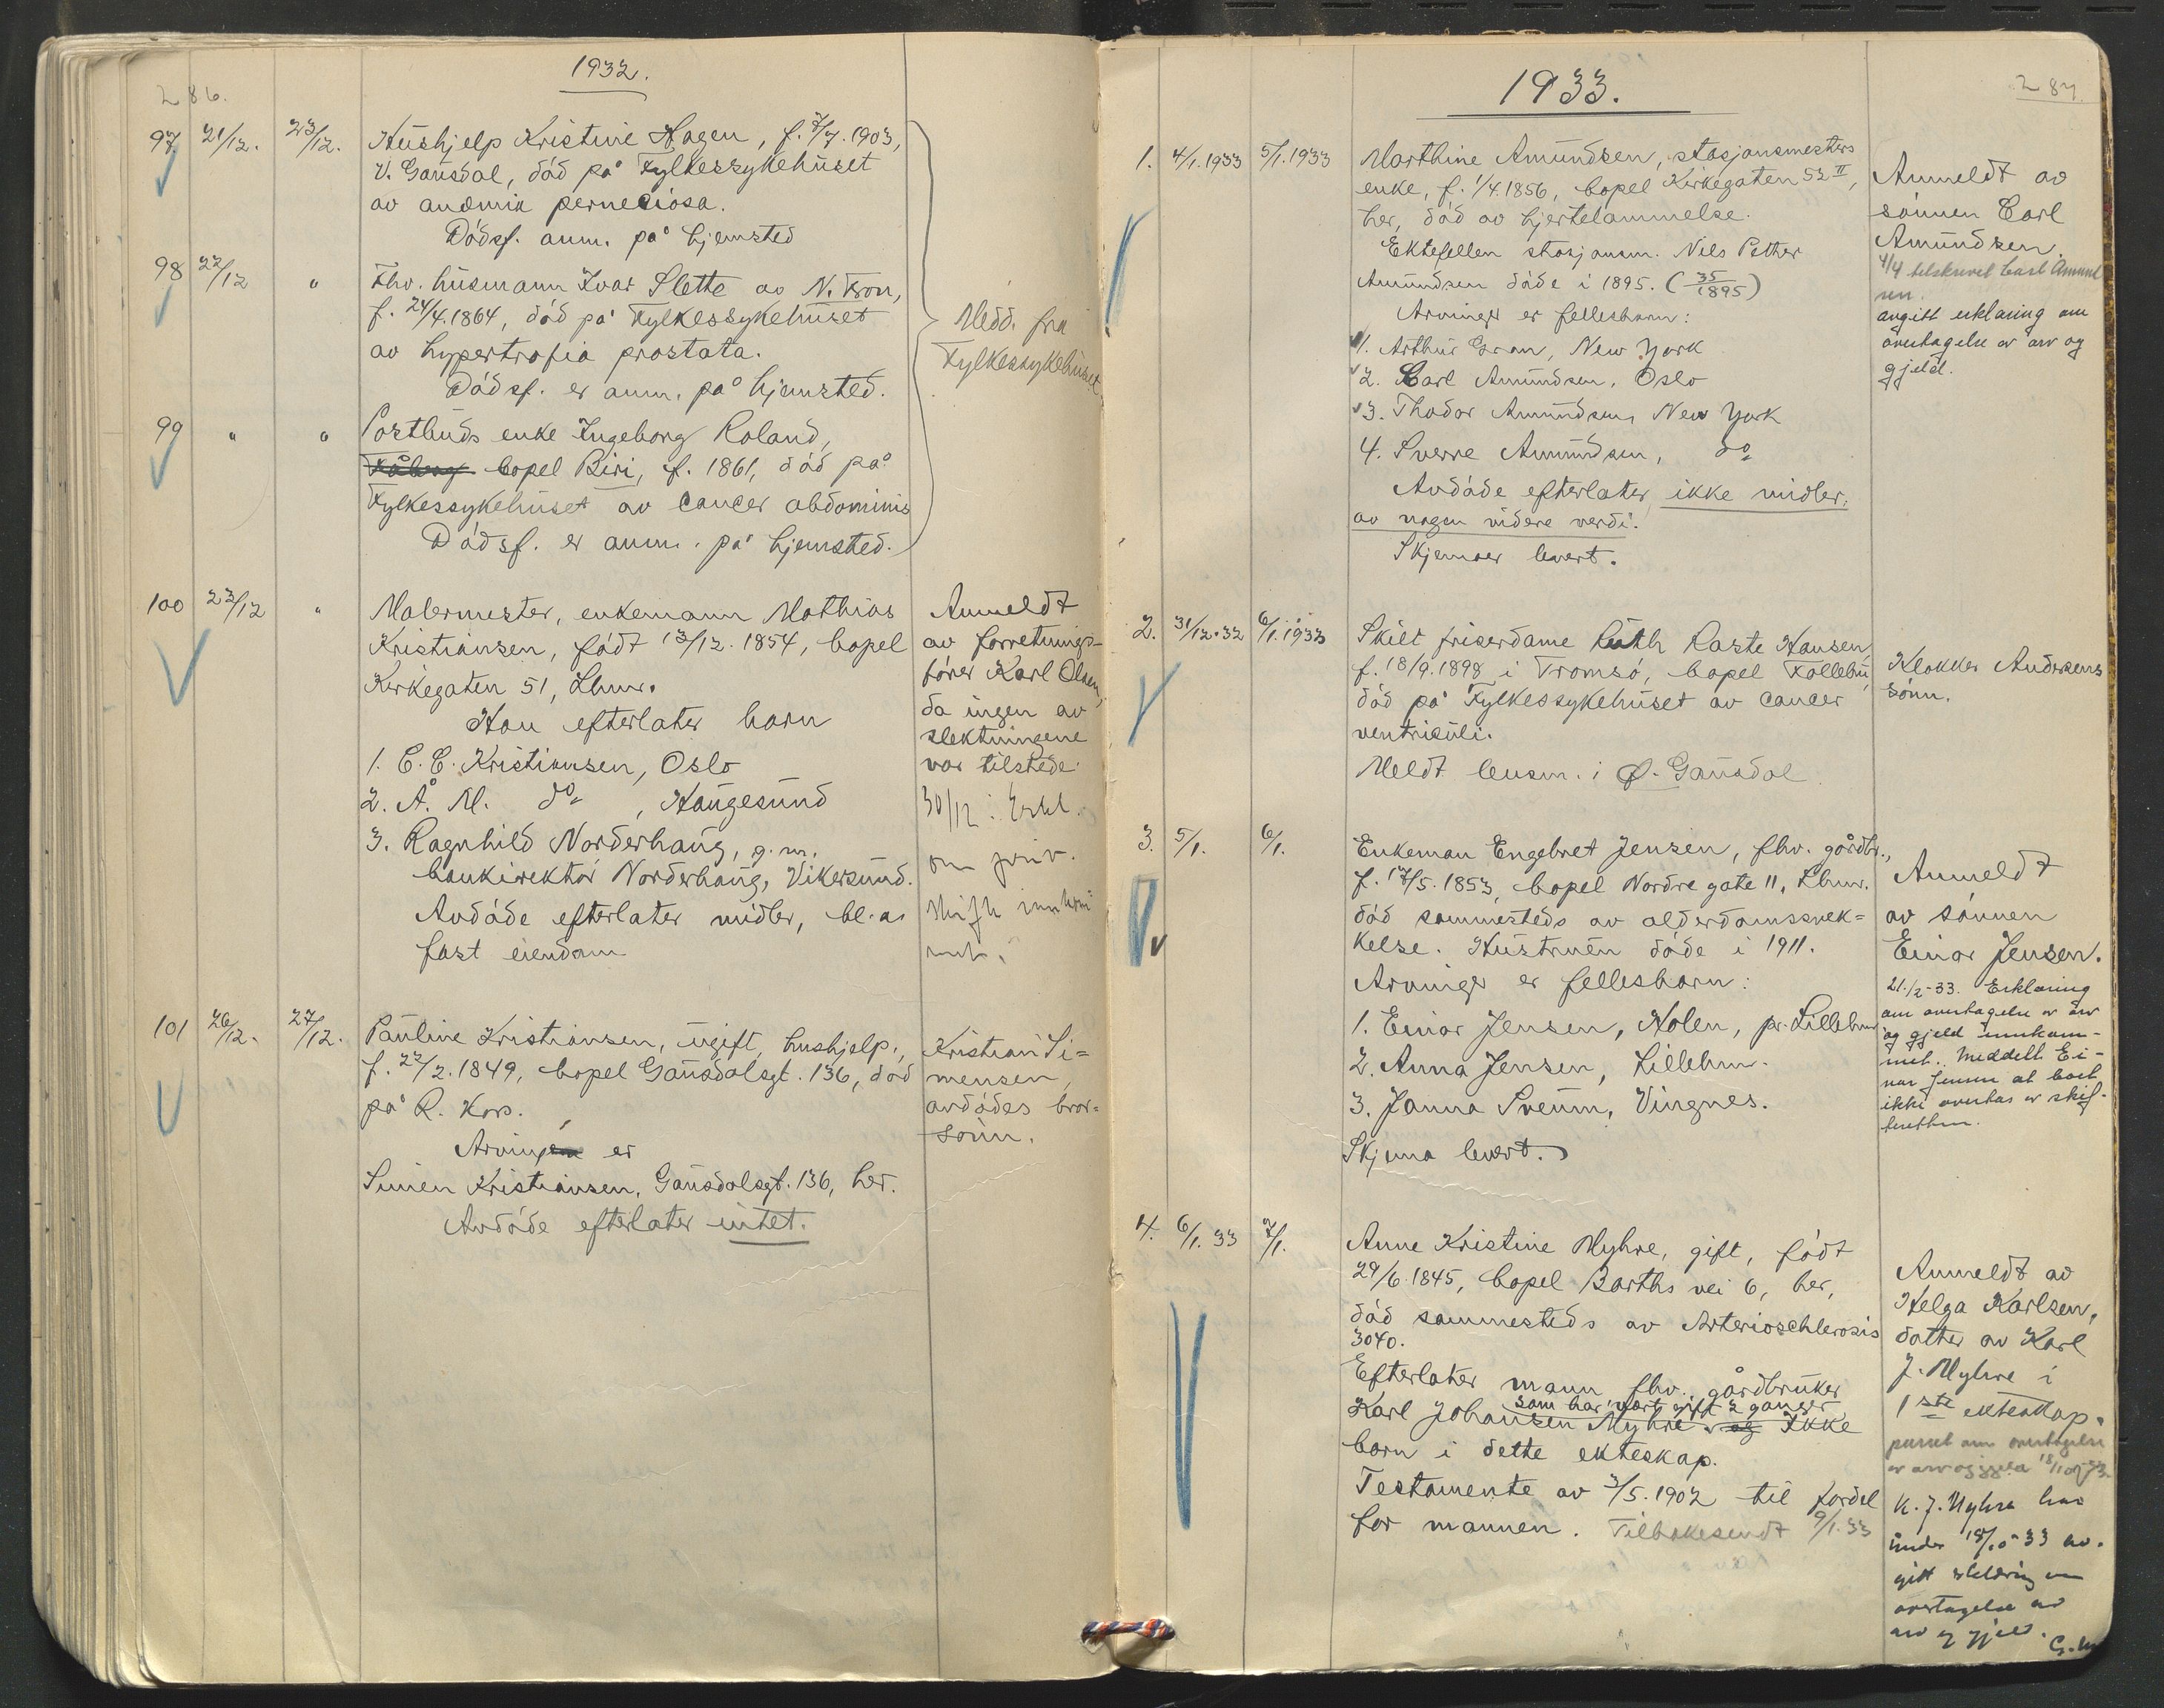 286.
1932.
97. 21/12. 23/12. Hushjelp Kristine Hagen, f. 7/7. 1903,
V. Gausdal, död på Fylkessykehuset
av anæmia perneciosa.
Dödsf. anm. på hjemsted
98 22/12 " Fhv. husmann Ivar Slette av N. Fron,
f. 24/4. 1864, död på Fylkessykehuset
av hypertrofia prostata.
Dödsf. er anm. på hjemsted.
Medd. fra
Fylkessykehuset
99 " " Postbuds enke Ingeborg Roland,
Fåberg bopel Biri, f. 1861, död på
Fylkessykehuset av cancer abdominis
Dödsf. er anm. på hjemsted.
100 23/12 " Malermester, enkemann Mathias
Kristiansen, födt 13/12. 1854, bopel
Kirkegaten 51, Lhmr.
Han efterlater barn
1. C. C. Kristiansen, Oslo
2. Å. M. do , Haugesund
3. Ragnhild Norderhaug, g. m.
bankirektör Norderhaug, Vikersund.
Avdöde efterlater midler, bl. a.
fast eiendom
Anmeldt
av forretnings-
förer Karl Olsen,
da ingen av
slektningene
var tilstede.
30/12: Erkl.
om priv.
skifte innkom
met.
101 26/12. 27/12. Pauline Kristiansen, ugift, hushjelp.,
f. 22/2. 1849, bopel Gausdalsgt. 136, död
på R. Kors.
Arvingen er
Simen Kristiansen, Gausdalsgt. 136, her.
Avdöde efterlater intet.
Kristian Si=
mensen,
avdödes bror=
sönn.
287.
1933.
1. 4/1. 1933 5/1. 1933 Marthine Amundsen, stasjonsmesters
enke, f. 1/4. 1856, bopel Kirkegaten 52 II,
her, död av hjertelammelse.
Ektefellen stasjonsm. Nils Pether
Amundsen döde i 1895. (35/1895)
Arvinger er fellesbarn:
1. Arthur Gran, New York
2. Carl Amundsen, Oslo
3. Thodor Amundsen, New York
4. Sverre Amundsen, do
Avdöde efterlater ikke midler,
av nogen videre verdi.
Skjemaer levert.
Anmeldt av
sönnen Carl
Amundsen.
4/4 tilskrevet Carl Amund
sen.
avgitt erklæring om
overtagelse av arv og
gjeld.
2. 31/12. 32 6/1. 1933 Skilt friserdame Ruth Raste Hansen,
f. 18/9. 1898 i Tromsö, bopel Follebu,
död på Fylkessykehuset av cancer
ventriculi.
Meldt lensm. i Ø. Gausdal
Klokker Andersens
sönn.
3. 5/1. 6/1. Enkeman Engebret Jensen, fhv. gårdbr.,
f. 17/5. 1853, bopel Nordre gate 11, Lhmr.
död sammesteds av alderdomssvek=
kelse. Hustruen döde i 1911.
Arvinger er fellesbarn:
1. Einar Jensen, Holen, pr. Lillehmr
2. Anna Jensen, Lillehmr.
3. Janna Sveum, Vingnes.
Skjema levert.
Anmeldt
av sönnen
Einar Jensen.
21./2-33. Erklæring
om overtagelse av arv
og gjeld innkom-
met. Meddelt Ei-
nar Jensen at boet
ikke overtas av skif-
teretten.
4. 6/1. 33 7/1. Anne Kristine Myhre, gift, födt
29/6. 1845, bopel Barths vei 6, her,
död sammesteds av Arterioschlerosis
3040.
Efterlater mann fhv. gårdbruker
som har vært gift 2 ganger
Karl Johansen Myhre og Ikke
barn i dette ekteskap.
Testamente av 3/5. 1902 til fordel
for mannen. Tilbakesendt 9/1. 33
Anmeldt av
Helga Karlsen,
datter av Karl
J. Myhre i
1ste ekteskap.
purret om overtagelse
av arv og gjeld
K. J. Myhre har
under 18/10-33 av-
gitt erklæring om
overtagelse av
arv og gjeld.